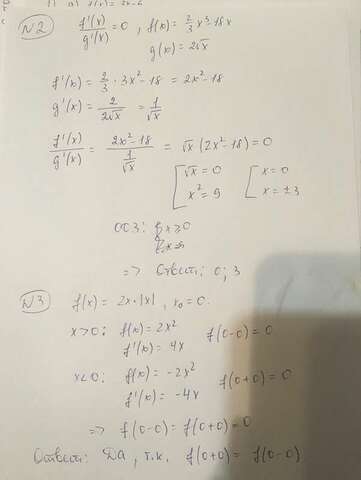 1) a) f(x) = 2x-6
N2 f'(x)/g'(x) = 0, f(x) = 2/3 x³-18x
g(x) = 2√x
f'(x) = 2/3 · 3x² - 18 = 2x² - 18
g'(x) = 2/(2√x) = 1/√x
f'(x)/g'(x) = (2x²-18)/(1/√x) = √x (2x²-18) = 0
[√x = 0 [x = 0
x² = 9 x = ±3
ОДЗ: {x ≥ 0
=> Ответ: 0; 3
N3 f(x) = 2x·|x|, x₀ = 0.
x>0: f(x) = 2x² f(0-0) = 0
f'(x) = 4x
x<0: f(x) = -2x² f(0+0) = 0
f'(x) = -4x
=> f(0-0) = f(0+0) = 0
Ответ: Да, т.к. f(0+0) = f(0-0)